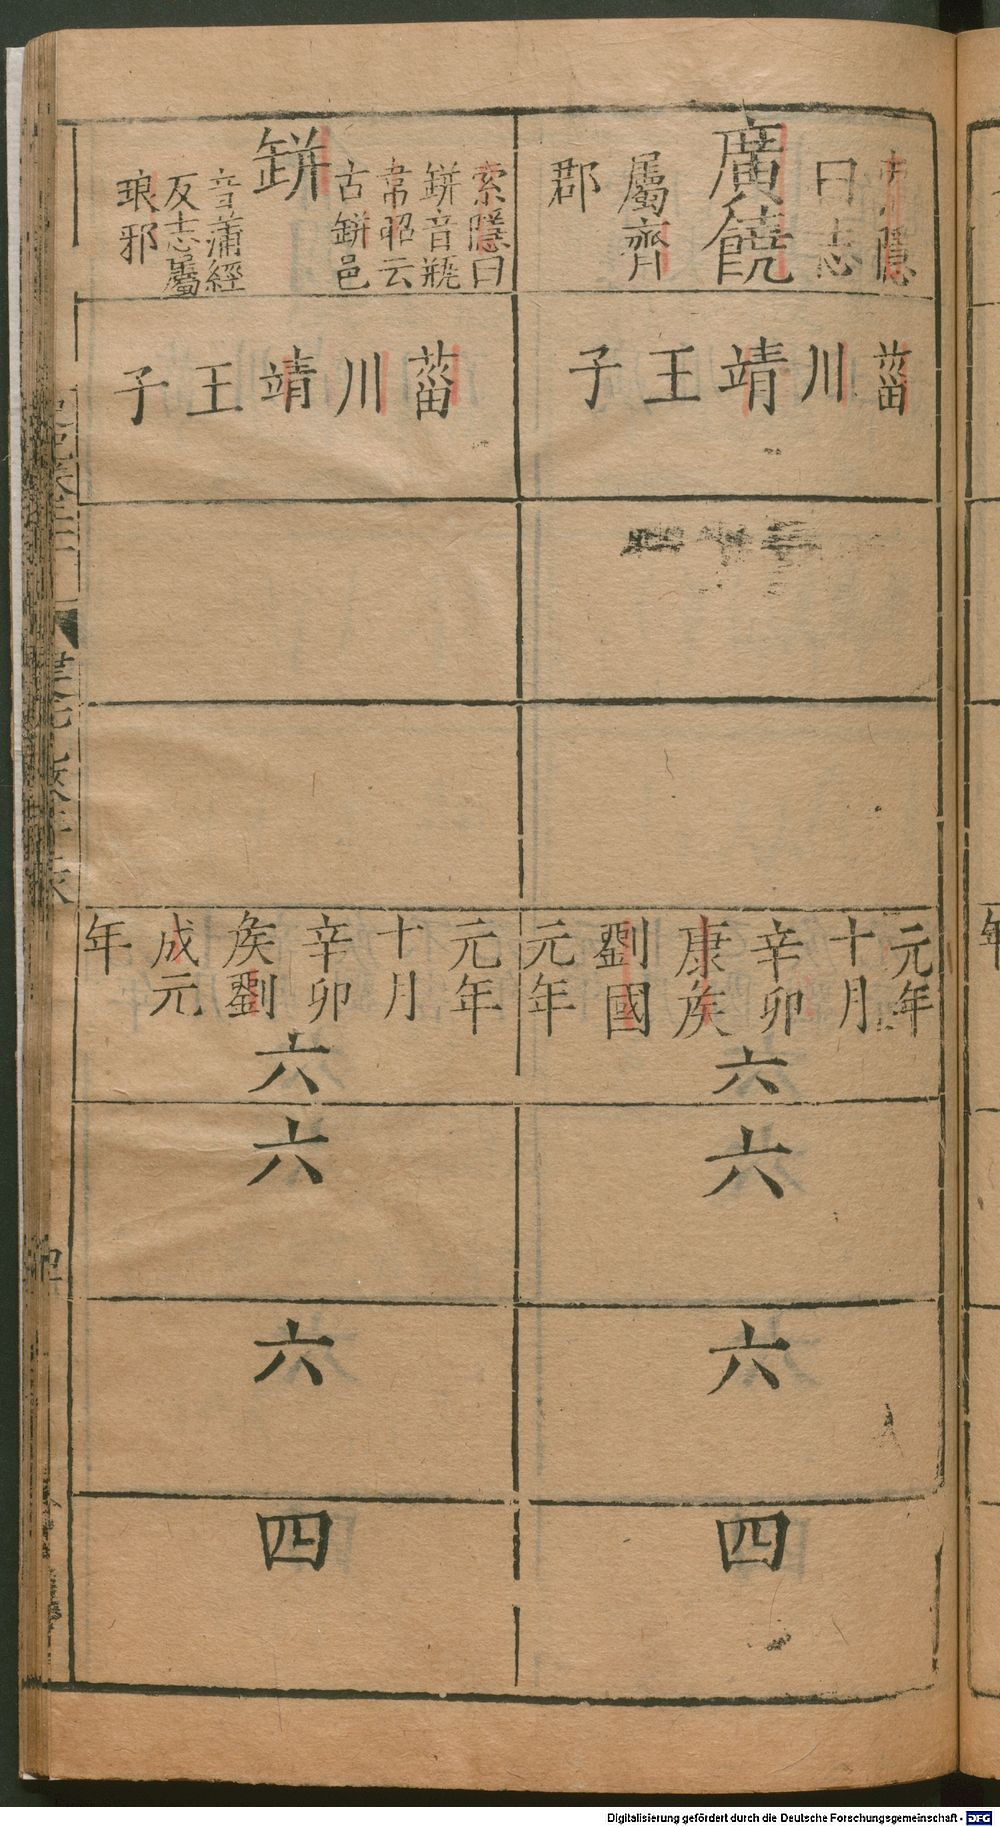 索隱
曰志
廣饒
屬齊
郡
菑川靖王子
元年
十月
辛卯
康矦
劉國
元年
六
六
六
四
索隱曰
缾音瓶
韋昭云
古缾邑
缾
音蒲經
反志屬
琅邪
菑川靖王子
元年
十月
辛卯
矦劉
成元
年
六
六
六
四
Digitalisierung gefördert durch die Deutsche Forschungsgemeinschaft - DFG